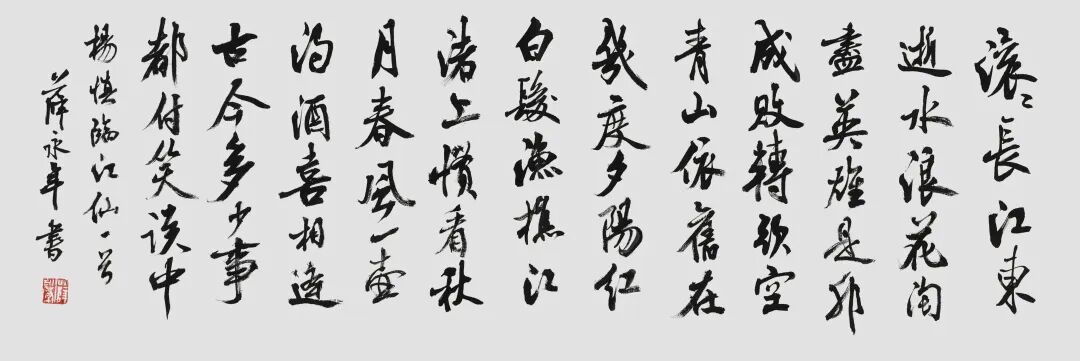 滚〻長江東
逝水浪花淘
盡英雄是非
成敗轉頭空
青山依舊在
幾度夕陽紅
白髮漁樵江
渚上慣看秋
月春風一壺
濁酒喜相逢
古今多少事
都付笑談中
楊慎臨江仙一首
薛永年書